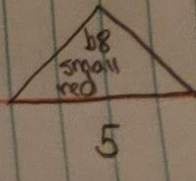 b8
small
red
5